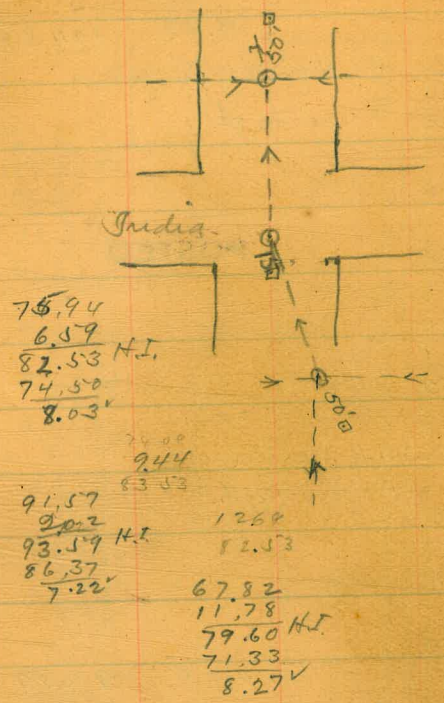 50'
India
50'
75.94
6.59
82.53 H.I.
74.50
8.03✓
74.09
9.44
83.53
91.57
2.02
93.59 H.I.
86.37
7.22✓
1264
82.53
67.82
11.78
79.60 H.I.
71.33
8.27✓